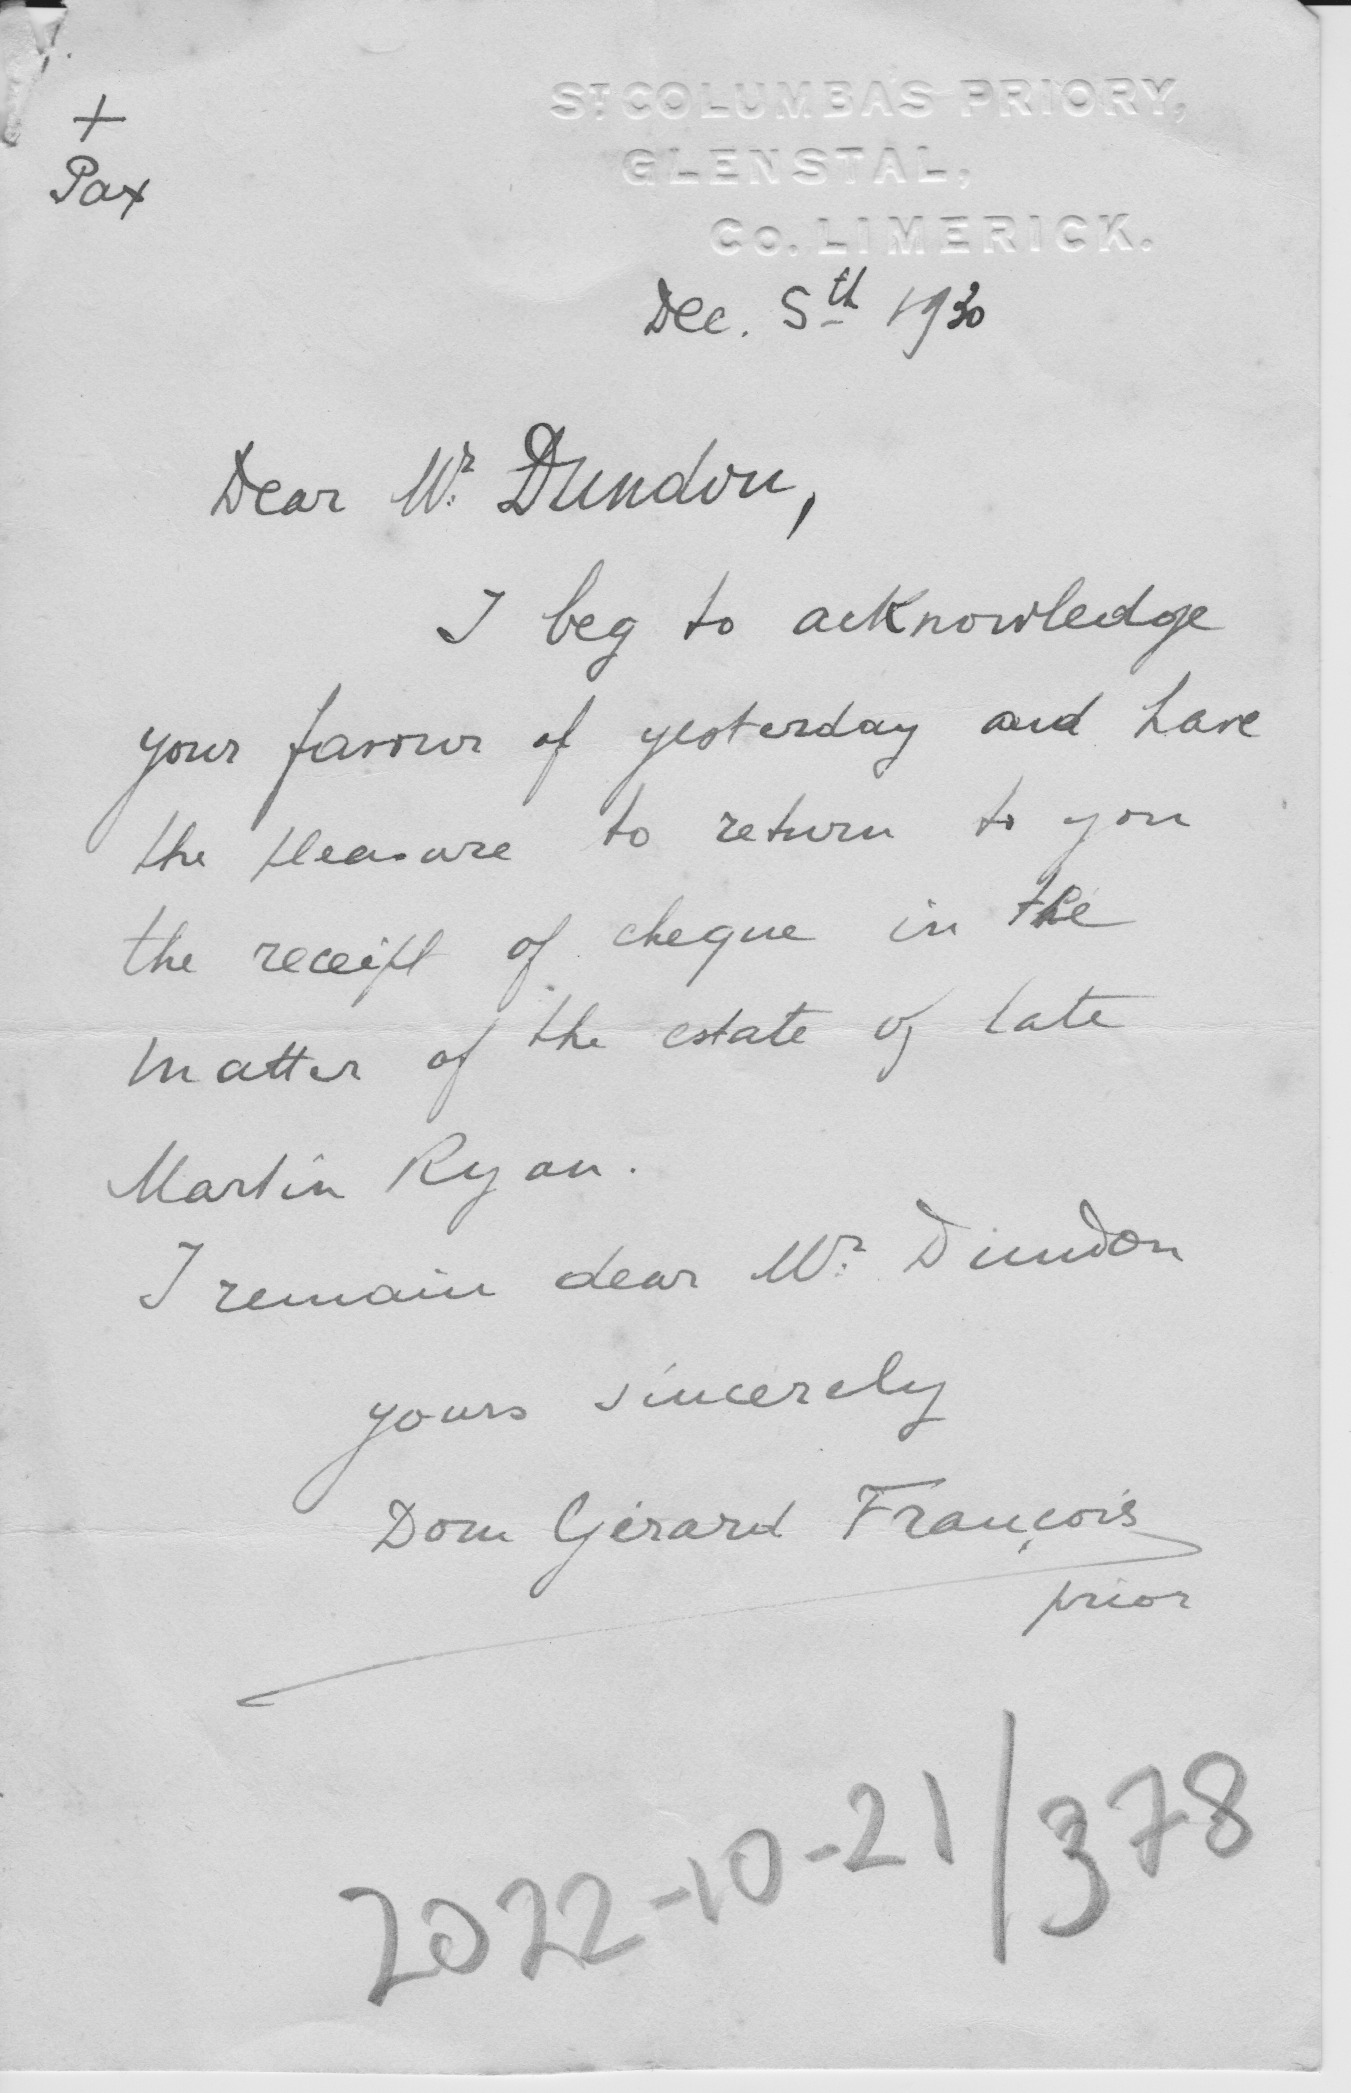 +
Pax
ST COLUMBAS PRIORY,
GLENSTAL,
CO. LIMERICK.
Dec. 5th 1930
Dear Mr. Dundon,
I beg to acknowledge
your favour of yesterday and have
the pleasure to return to you
the receipt of cheque in the
matter of the estate of late
Martin Ryan.
I remain dear Mr. Dundon
yours sincerely
Dom Gérard François
prior
2022-10-21/378